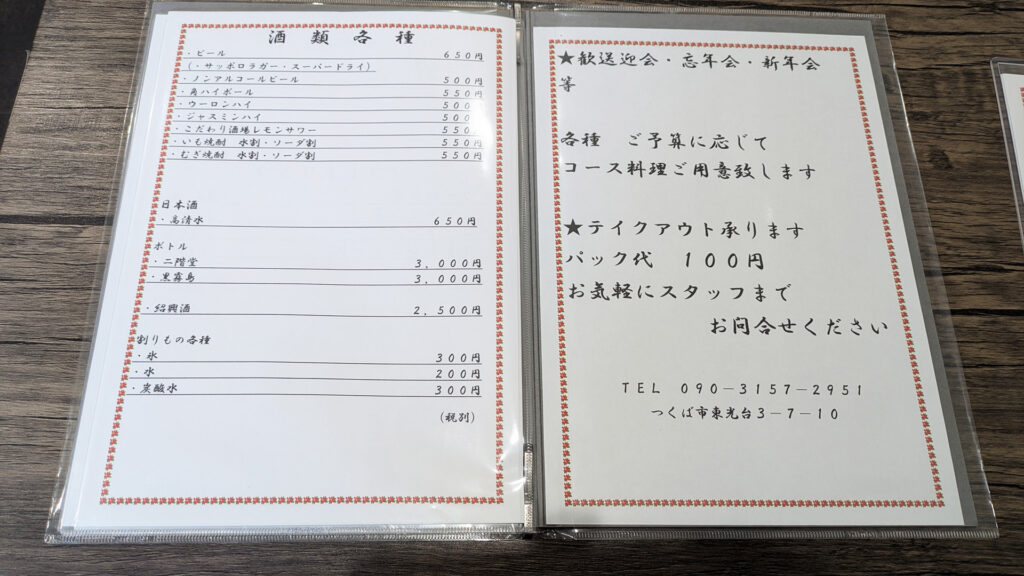 酒類各種
・ビール　６５０円
（・サッポロラガー・スーパードライ）
・ノンアルコールビール　５００円
・角ハイボール　５５０円
・ウーロンハイ　５００円
・ジャスミンハイ　５００円
・こだわり酒場レモンサワー　５５０円
・いも焼酎　水割・ソーダ割　５５０円
・むぎ焼酎　水割・ソーダ割　５５０円
日本酒
・高清水　６５０円
ボトル
・二階堂　３，０００円
・黒霧島　３，０００円
・紹興酒　２，５００円
割りもの各種
・氷　３００円
・水　２００円
・炭酸水　３００円
（税別）
★歓送迎会・忘年会・新年会
等
各種　ご予算に応じて
コース料理ご用意致します
★テイクアウト承ります
パック代　１００円
お気軽にスタッフまで
お問合せください
ＴＥＬ　０９０－３１５７－２９５１
つくば市東光台３－７－１０